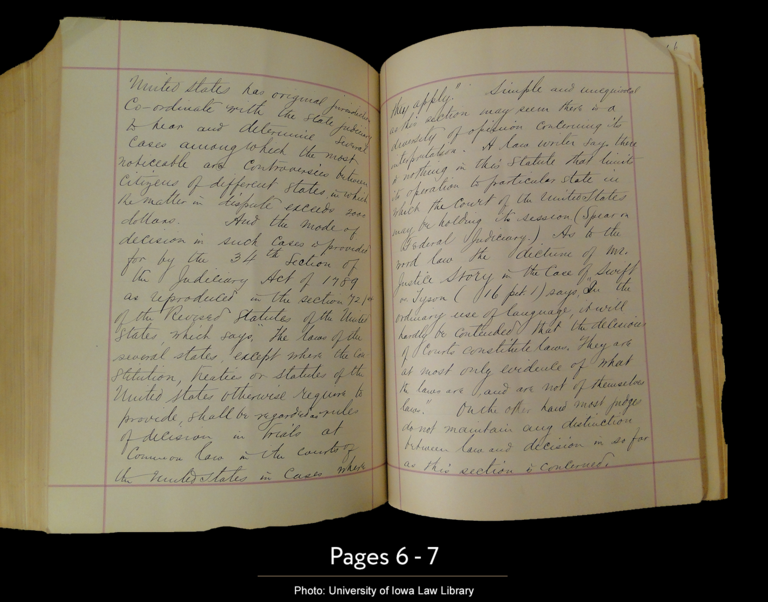 United States has original jurisdiction
Co-ordinate with the State judiciary
to hear and determine several
cases among which the most
noticeable are Controversies between
Citizens of different States in which
the matter in dispute exceeds 2000
dollars. And the mode of
decision in such cases is provided
for by the 34th Section of
the Judiciary Act of 1789
as reproduced in the section 721
of the Revised Statutes of the United
States, which says, "The laws of the
several states, except where the Con
stitution, treaties or statutes of the
United States otherwise require to
provide, shall be regarded as rules
of decision in trials at
Common law in the courts of
the United States in Cases where
they apply." Simple and unequivocal
as this section may seem there is a
diversity of opinion concerning its
interpretation. A law writer says there
is nothing in this Statute that limits
its operation to particular State in
which the Court of the United States
may be holding its session (Spear on
Federal Judiciary.) As to the
word law the dictum of Mr.
Justice Story in the Case of Swift
vs Tyson ( 16 pet 1) says, "In the
ordinary use of language, it will
hardly be contended that the decisions
of Courts constitute laws. They are
at most only evidence of what
the laws are, and are not of themselves
laws." On the other hand most judges
do not maintain any distinction
between law and decision in so far
as this section is concerned.
Pages 6 - 7
Photo: University of Iowa Law Library